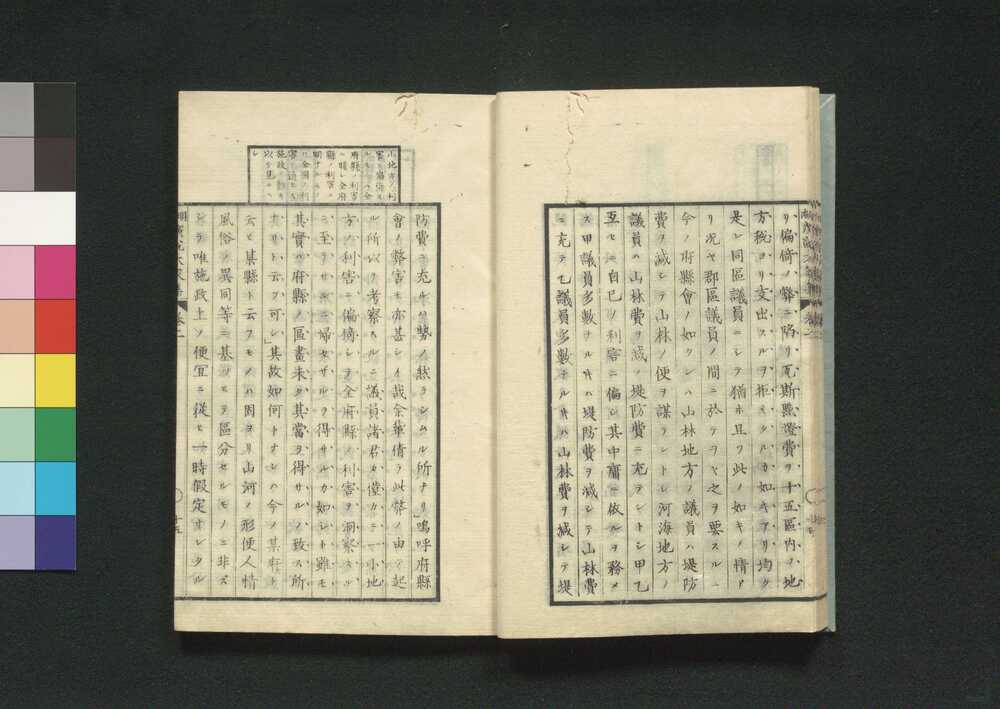 リ偏倚ノ弊ニ陷リ瓦斯點燈費ヲ十五區內ノ地
方税ヨリ支出スルヲ拒ミタルカ如キアリ均ク
是レ同區議員ニシテ猶ホ且ツ此ノ如キノ情ア
リ况ヤ郡區議員ノ間ニ於テヲヤ之ヲ要スルニ
今ノ府縣會ノ如クンハ山林地方ノ議員ハ堤防
費ヲ減シテ山林ノ便ヲ謀ラントシ河海地方ノ
議員ハ山林費ヲ減シ堤防費ニ充テントシ甲乙
互ニ自己ノ利害ニ偏シ其中庸ニ依ルヲ務メ
ス甲議員多數ナルキハ堤防費ヲ減シテ山林費
ニ充テ乙議員多數ナルキハ山林費ヲ減シテ堤
防費ニ充ルハ勢ノ然ラシムル所ナリ」嗚呼府縣
會ノ弊害モ亦甚シイ哉余輩倩ラ此弊ノ由テ起
ル所以ヲ考察スルニ議員諸君カ僅カニ一小地
方ノ利害ニ偏倚シテ全府縣ノ利害ヲ洞察スル
ニ至ラサルニ歸セザルヲ得サルカ如シト雖モ
其實ハ府縣ノ區畫未タ其當ヲ得サルノ致ス所
ナリト云フ可シ」其故如何トナレハ今ノ某府ト
云ヒ某縣ト云フモノハ固ヨリ山河ノ形便人情
風俗ノ異同等ニ基ツヒテ區分セルモノニ非ス
シテ唯施政上ノ便宜ニ從ヒ一時假定セシタル
卷二
十五